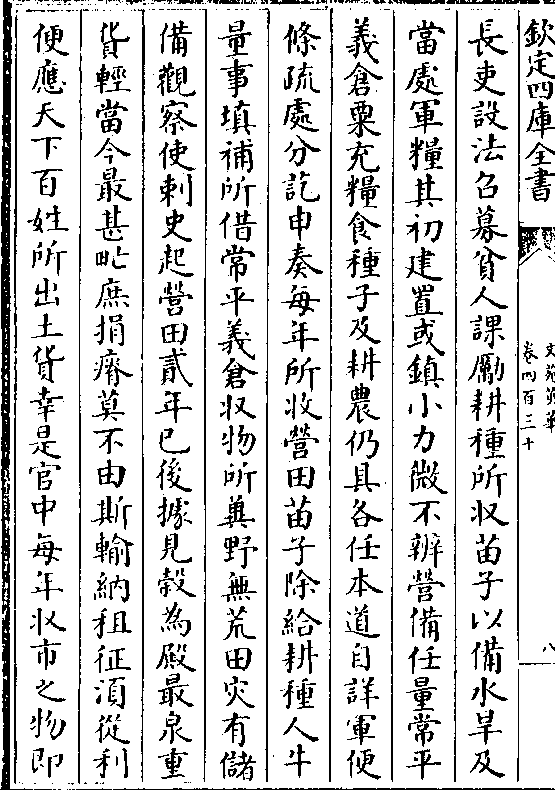 欽定四庫全書
文苑英華
卷四百三十
八
長吏設法召募貧人課勵耕種所収苗子以備水旱及
當處軍糧其初建置或鎮小力微不辦營備任量常平
義倉粟充糧食種子及耕農仍具各任本道自詳軍便
條疏處分訖申奏每年所收營田苗子除給耕種人牛
量事填補所借常平義倉収物所兾野無荒田灾有儲
備觀察使刺史起營田貳年已後據見榖為殿最泉重
貨輕當今最甚甿庶捐瘠莫不由斯輸納租征湏從利
便應天下百姓所出土貨幸是官中每年収市之物即